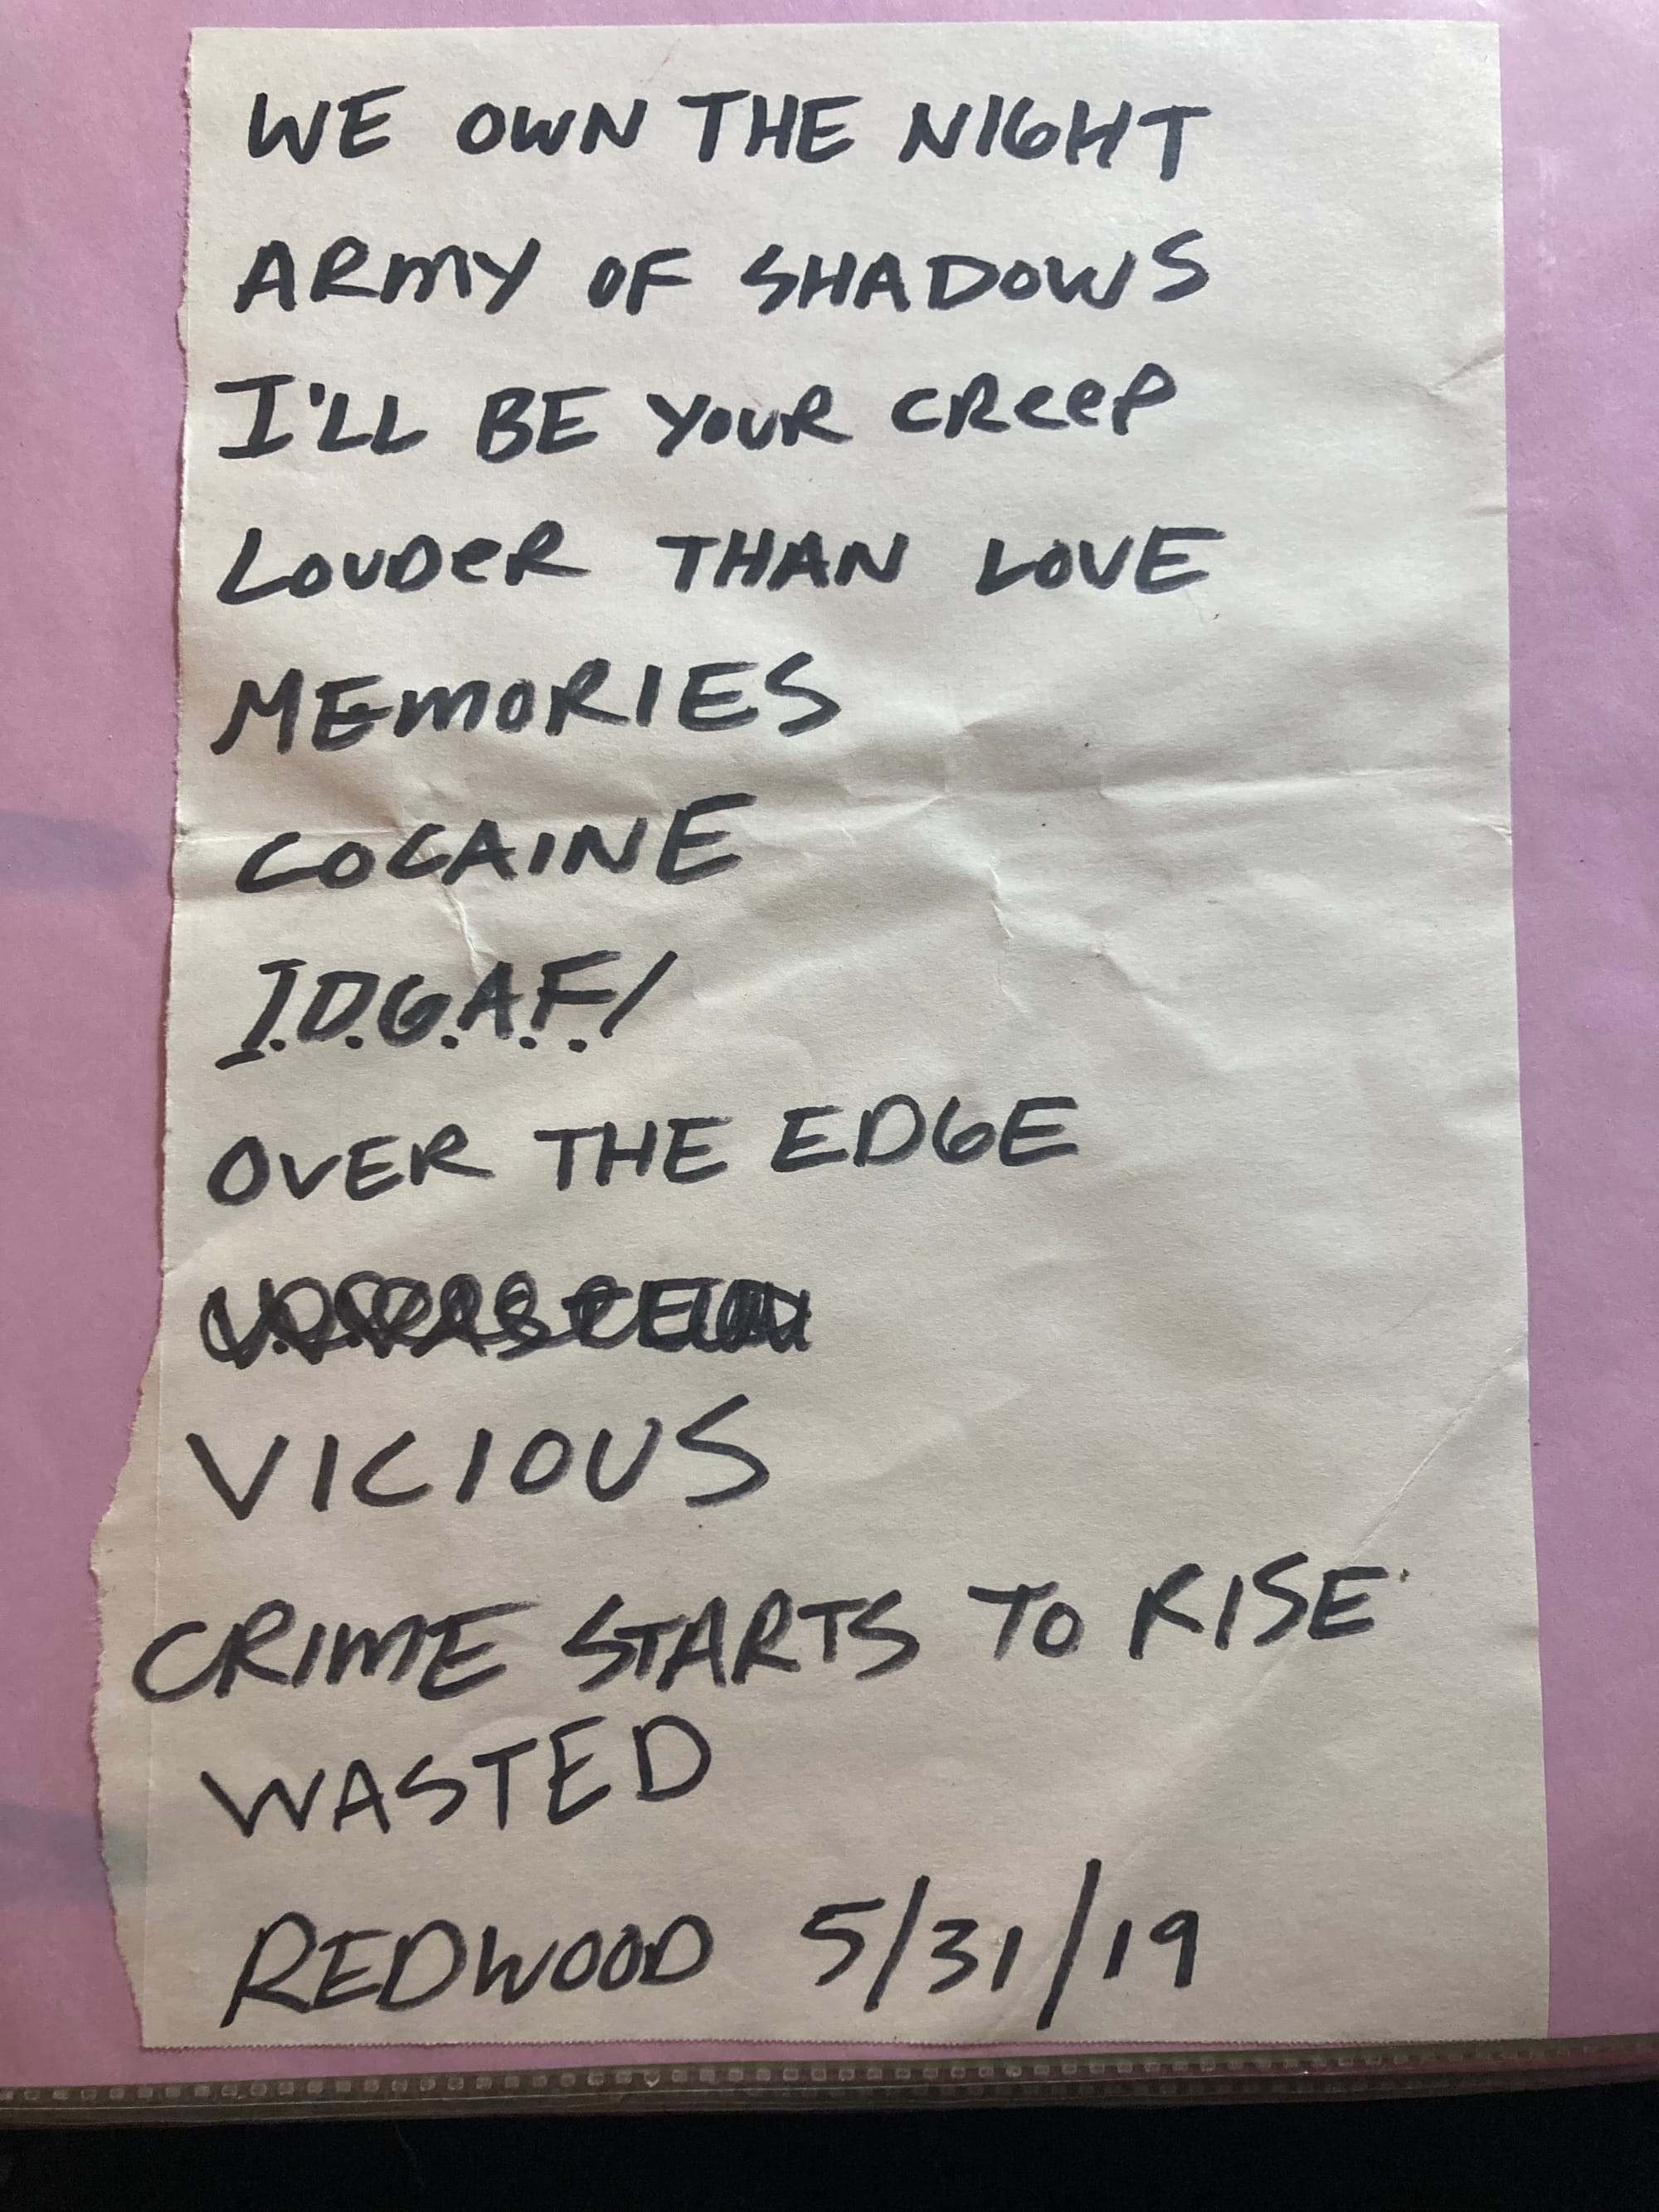 WE OWN THE NIGHT
ARMY OF SHADOWS
I'LL BE YOUR CReeP
LOUDeR THAN LOVE
MEMORIES
COCAINE
I.D.G.A.F./
OVER THE EDGE
VICIOUS
CRIME STARTS TO RISE
WASTED
REDWOOD 5/31/19